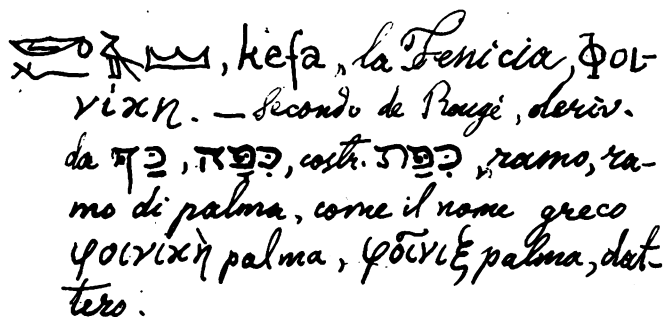 , kefa, la Fenicia, Φοι-
νίκη. — Secondo de Rougé, deriv.
da כַּף, כִּפָּה, costr. כִּפַּת, ramo, ra-
mo di palma, come il nome greco
φοινικὴ palma, φοῖνιξ palma, dat-
tero.